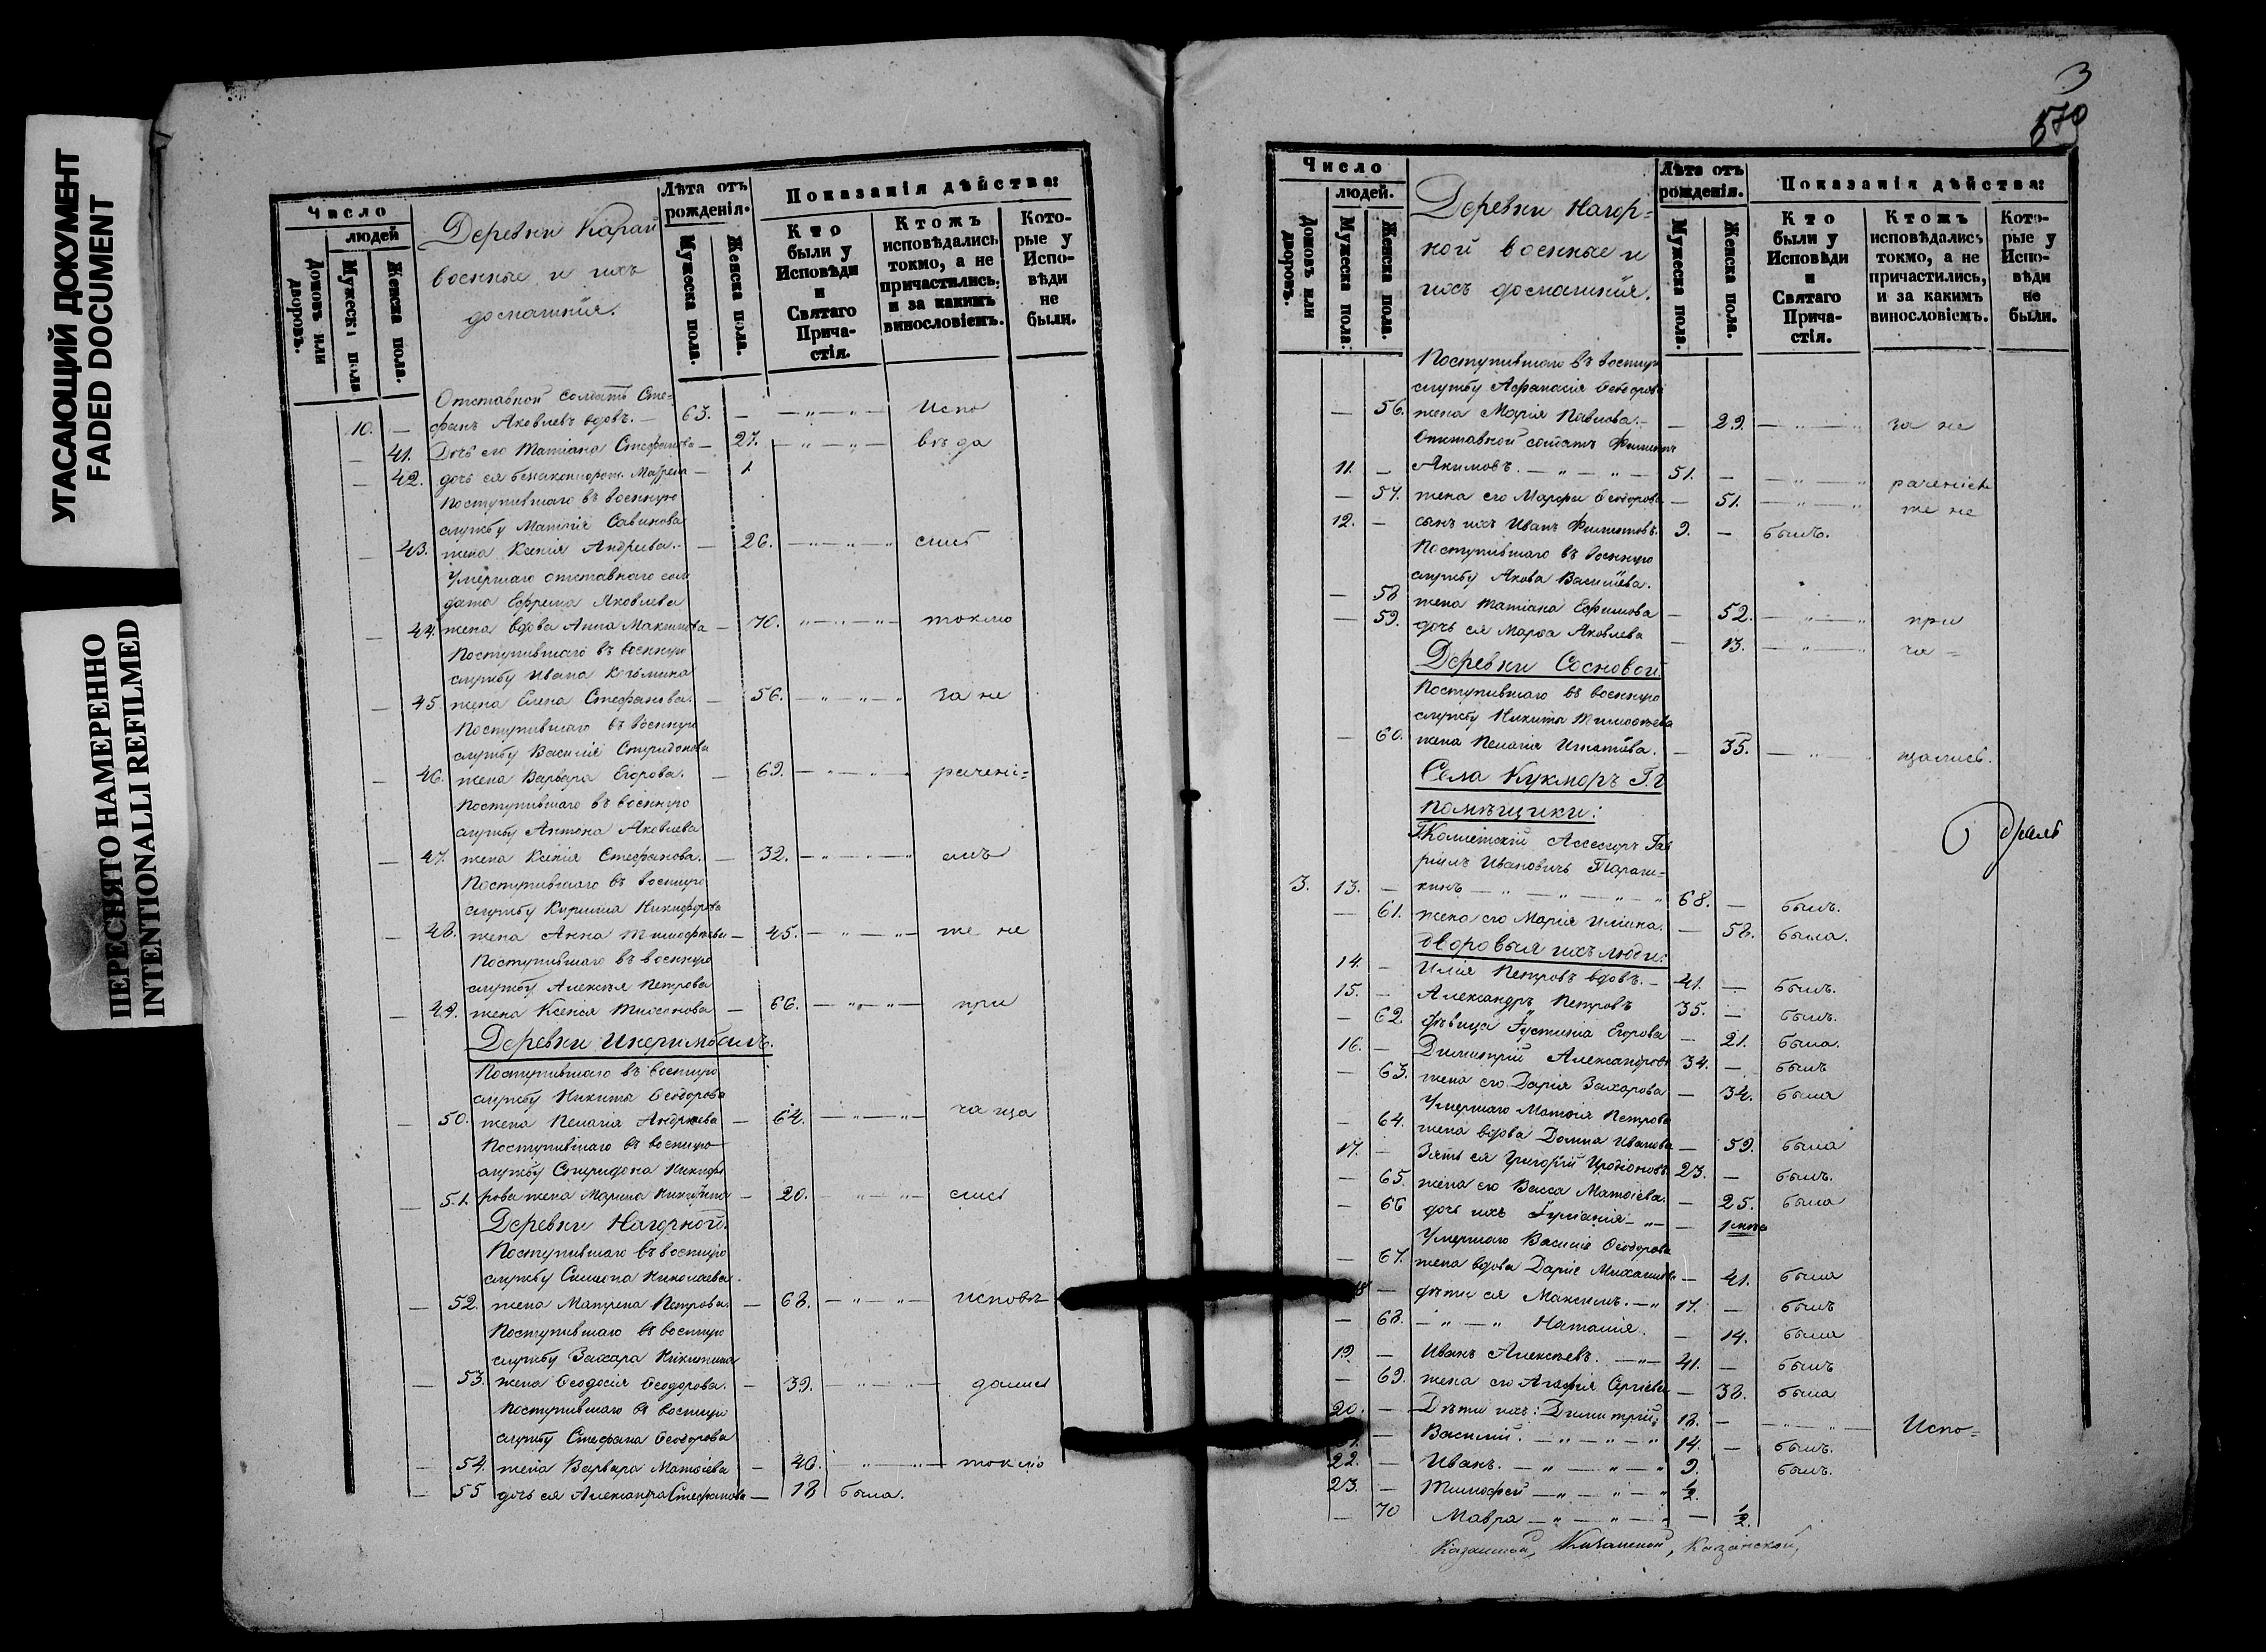 УТАСАЮЩИЙ ДОКУМЕНТ
FADED DOCUMENT
ПЕРЕСНЯТО НАМЕРЕННО
INTENTIONALLI REFILMED
Число
людей
Домовъ или дворовъ.
Мужеска пола
Женска пола.
Деревни Карай
военные и ихъ
домашнія.
Лѣта отъ рожденія.
Мужеска пола.
Женска пола.
Показанія дѣйства:
Кто были у Исповѣди и Святаго Прича-стія.
Ктожъ исповѣдались токмо, а не причастились, и за какимъ винословіемъ.
Кото-рые у Испо-вѣди не были.
Отставной солдатъ Сте-
10. — фанъ Яковлевъ вдовъ. — 63. — — „ — „ — Испо
— 41. Дочь его Татіана Стефанова — 27. — „ — „ — вѣда
— 42. дочь ея беззаконнорож. Матрена — 1
Поступившаго въ военную
службу Савинова
— 43. жена Ксенія Андреева. — 26. — „ — „ — „ слись
Умершаго отставнаго сол
дата Ефрема Яковлева
— 44. жена вдова Анна Максимова — 70. „ — „ — „ — токмо
Поступившаго въ военную
службу Ивана Козьмина
— 45. жена Елена Стефанова. — 56. — „ — „ — „ за не
Поступившаго въ военную
службу Василія Спиридонова
— 46. жена Варвара Егорова. — 69. — „ — „ — рачені=
Поступившаго въ военную
службу Антона Яковлева
— 47. жена Ксенія Стефанова. — 32. — „ — „ — „ емъ
Поступившаго въ военную
службу Кирилла Никифорова
— 48. жена Анна Тимофеева — 45. — „ — „ — же не
Поступившаго въ военную
службу Алексѣя Петрова
— 49. жена Ксенія — 66. — „ — „ — при
Деревни
Поступившаго въ военную
службу Никиты Ѳеодорова
— 50. жена Пелагія Андреева — 64. — „ — „ — ча ща
Поступившаго въ военную
службу Спиридона Никифо
— 51. рова жена Марина Никитина — 20. — „ — „ — слись
Деревни Нагорной.
Поступившаго въ военную
службу Николаева
— 52. жена Матрена Петрова. — 68. — „ — „ — исповѣ
Поступившаго въ военную
службу Захара Никитина
— 53. жена Ѳеодосія Ѳеодорова. — 39. — „ — „ — дались
Поступившаго въ военную
службу Стефана Ѳеодорова
— 54. жена Варвара Матѳіева — 46. — „ — „ — токмо
— 55 дочь ея Александра Стефанова — 18 была.
3
570
Число
людей.
Домовъ или дворовъ.
Мужеска пола.
Женска пола.
Деревни Нагор=
ной военные и
ихъ домашнія.
Лѣта отъ рожденія.
Мужеска пола.
Женска пола.
Показанія дѣйства:
Кто были у Исповѣди и Святаго Прича-стія.
Ктожъ исповѣдались токмо, а не причастились, и за какимъ винословіемъ.
Кото-рые у Испо-вѣди не были.
Поступившаго въ военную
службу Афанасія Ѳеодорова
— 56. жена Марія Павлова. — 29. — „ — „ за не
Отставной солдатъ Филиппъ
11. — Акимовъ. — „ — „ — 51. — — „ — „ раченіемъ
— 57. жена его Марфа Ѳеодорова — 51. — „ — „ же не
12. — сынъ ихъ Иванъ Филипповъ. 9. — былъ.
Поступившаго въ военную
службу Якова Васильева.
— 58 жена Татіана Ефимова — 52. — „ — „ при
— 59. дочь ея Марѳа Яковлева — 13. — „ — „ ча =
Деревни Сосновой.
Поступившаго въ военную
службу Никиты Тимоѳеева
— 60. жена Пелагія Игнатьева. — 35. — „ — „ щались.
Села Кукморъ Г.г.
помѣщики:
Г. Коллежскій Ассесоръ Гав
ріилъ Ивановичъ Тараш-
3. 13. — кинъ — „ — „ — „ 68. — былъ.
— 61. жена его Марія Ильина. — 58. была.
дворовыя ихъ люди:
14. — Илья Петровъ вдовъ. — 41. — былъ.
15. — Александръ Петровъ 35. — былъ.
— 62 дѣвица Іустинія Егорова — 21. была.
16. — Димитрій Александровъ 34. — былъ
— 63. жена его Дарія Захарова — 34. была
Умершаго Матѳія Петрова
— 64. жена вдова Домна Иванова — 59. была
17. — Зять ея Григорій Иродіоновъ 23. — былъ.
— 65. жена его Васса Матѳіева. — 25. была
— 66 дочь ихъ — „ — — 1
Умершаго Василія Ѳеодорова
— 67. жена вдова Дарія Михайлова — 41. была
18 — дѣти ея Максимъ. — „ 17. — былъ
— 68. — „ — „ Наталія. — 14. была
19. — Иванъ Алексѣевъ. — „ — 41. — былъ
— 69. жена его Агафія Сергіева — 38. была
20. — Дѣти ихъ: Димитрій; 18. — — „ — „ — Испо=
21. — Василій. — „ — „ — „ 14. — былъ.
22. — Иванъ. — „ — „ — „ 9. былъ.
23. — Тимофей — „ — „ — „ ½
— 70 Мавра — „ — „ — „ — ½.
Казанской, Казанской, Казанской,